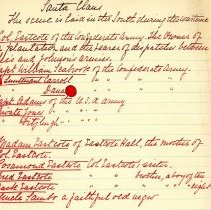 Santa Claus
The scene is laid in the South during the wartime
Col Eastcote of the Confederate Army. The Owner of
plantation and the bearer of despatches between
Lee and Johnsons armies.
Capt William Seabrook of the Confederate Army.
Lieutenant Carroll
Dana
Capt Adams of the U.S.A army
Private Jones
Fitzhugh
Madam Eastcote of Eastcote Hall, the mother of
Col Eastcote.
Rosamond Eastcote Col Eastcote's sister.
Fred Eastcote " brother, a boy of ten
Jack Eastcote " " " " eight
Uncle Sambo a faithful old negro